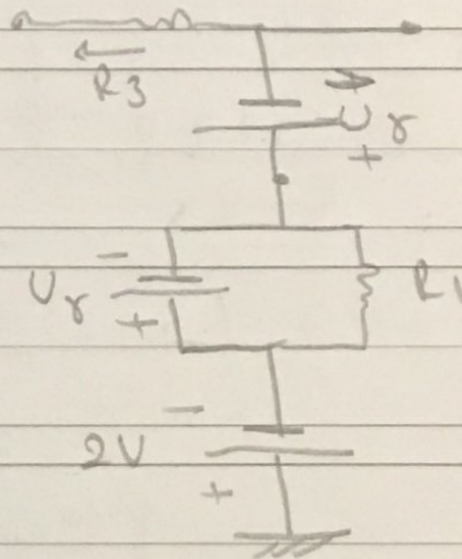 R3
Uγ
+
−
Uγ
+
R1
−
2V
+